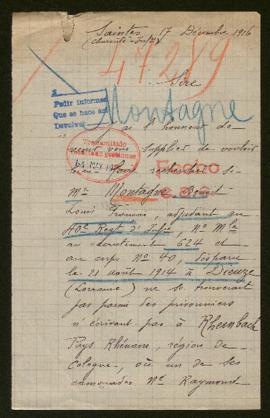 Saintes, 17 Décembre 1916
(Charente-Infre)
47289
Sire
A
Pedir informes
Que se hace así
Devolver
Montagne
J'ai l'honneur de
venir vous supplier de vouloir
bien faire rechercher
Transmitido
Mr Montagne Benoit
Louis François, adjudant au
40e Regt d'Infie, No Mle
au recrutement 624 et
au corps No 40, disparu
le 21 août 1914 à Dieuze
(Lorraine) ne se trouverait
pas parmi les prisonniers
n'écrivant pas à Rheinbach
Pays Rhénans, région de
Cologne, où un de ses
camarades Mr Raymond